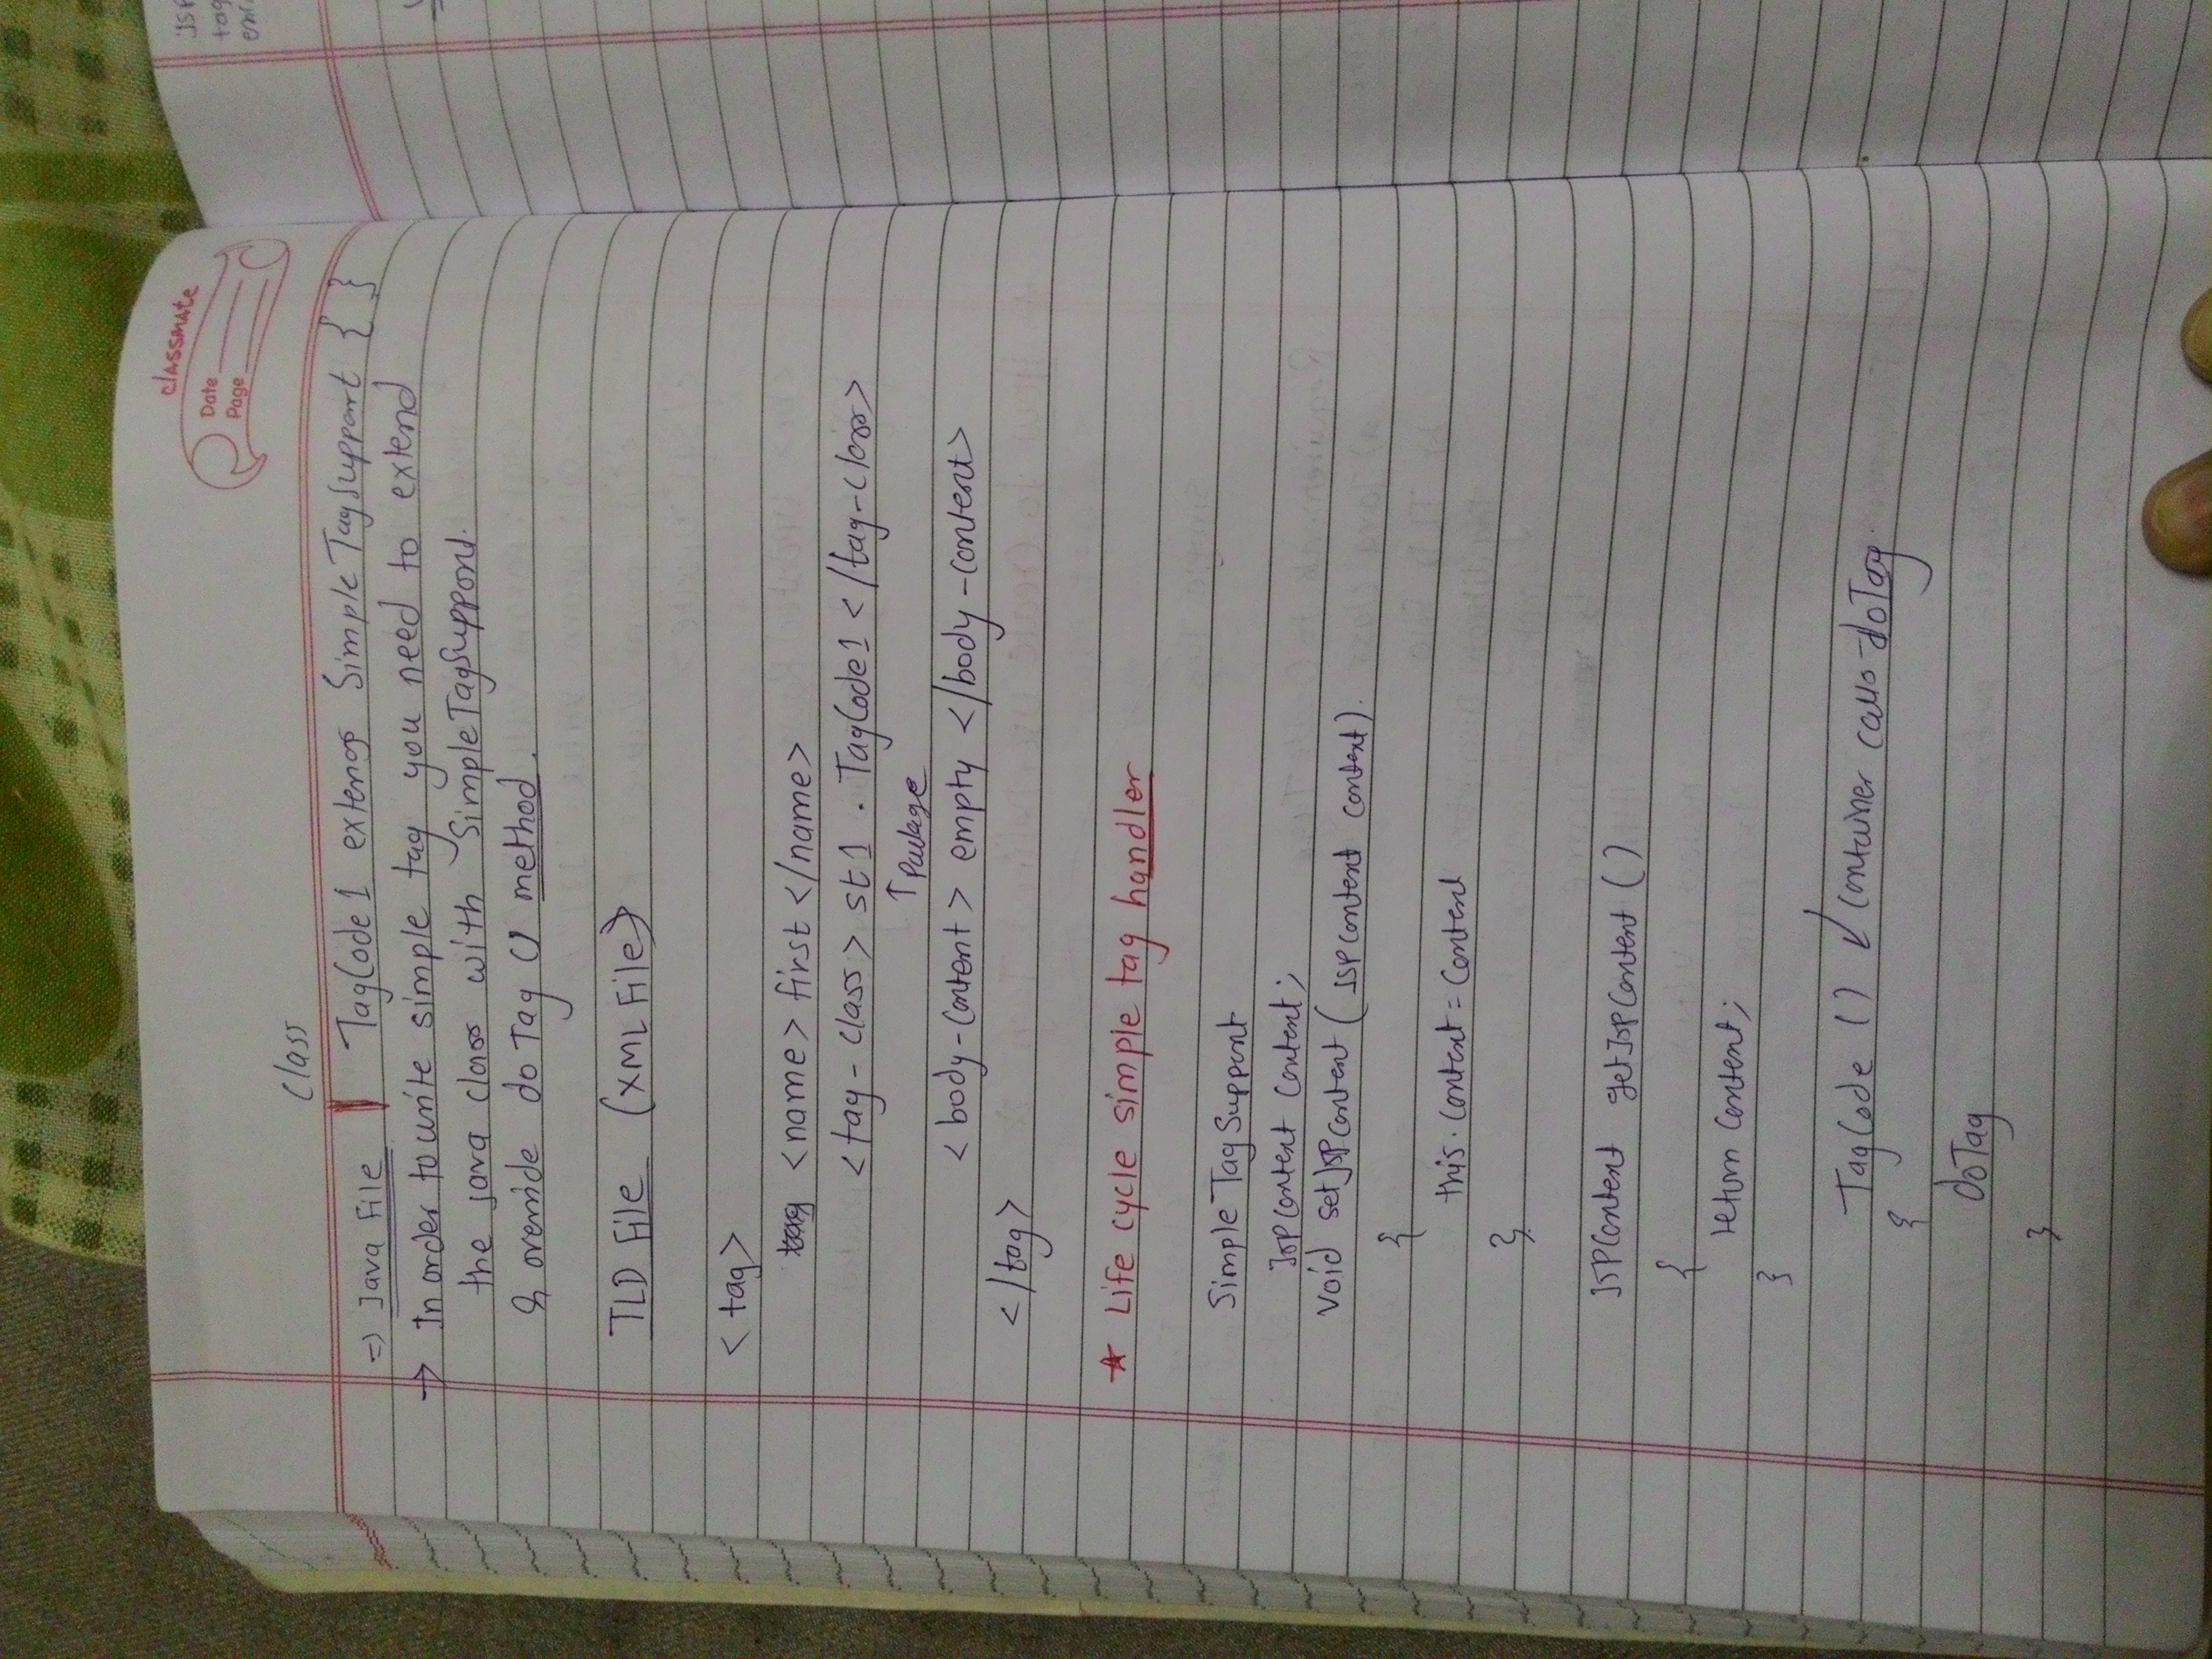 classmate
Date
Page
class
=) Java File | TagCode1 extends SimpleTagSupport { }
→ In order to write simple tag you need to extend
the java class with SimpleTagSupport.
& override doTag () method.
TLD File (XML File)
<tag>
<name> first </name>
<tag-class> st1 . TagCode1 </tag-class>
↑ Package
<body-content> empty </body-content>
</tag>
★ Life cycle simple tag handler
SimpleTagSupport
JspContent Content;
void setJspContent ( JspContent context).
{
this.Content = Content
}
JSPContent getJspContent ()
{
return Content;
}
TagCode () ↙ Container calls doTag.
{
doTag
}
JSP
tag